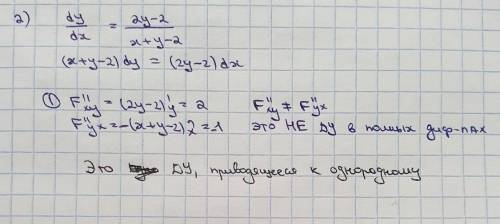 2) dy/dx = (2y-2)/(x+y-2)
(x+y-2)dy = (2y-2)dx
① F''xy = (2y-2)'y = 2 F''xy ≠ F''yx
F''yx = -(x+y-2)'x = -1 это НЕ ДУ в полных диф-лах
Это ДУ, приводящееся к однородному